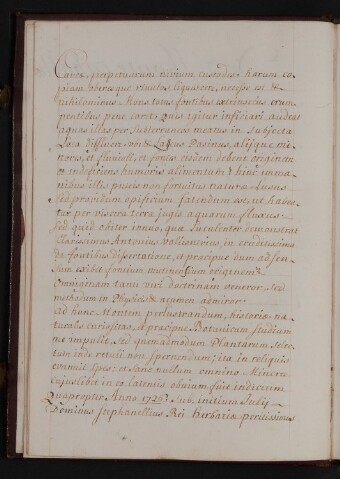 Carex, perpetuarum nivium custodes: harum co,
piam uberemque rivulos liquescere, necesse est &
nihilominus Mons totus fontibus extrinsecus erum,
pentibus pene caret. Quis igitur inficiari audeat
aquas illas per subterraneos meatus in subjecta
Loca diffluere: novit & Lacus Vasinus, aliique mi,
nores, et fluvioli, et fontes eisdem debent originem
& indeficiens humoris alimentum: & hinc imma,
nibus illis puteis non fortuitus naturae Lusus
sed providum opificium fatendum est, ut habea,
tur per viscera terrae jugis aquarum fluxus:
sed quid obiter innuo, quae luculenter demonstrat
Clarissimus Antonius Valisnerius, in eruditissima
de fontibus dissertatione, et praecipue dum ad sen,
sum exibet fontium mutinensium originem &
Omnigenam tanti viri doctrinam veneror, sed
methodum in Physicis & acumen admiror.
Ad hunc Montem perlustrandum, historiae na,
turalis curiositas, et praecipue Botanicum studium
me impulit, sed quemadmodum Plantarum selec,
tum inde retuli non spernendum; ita in reliquis
evanuit spes; et sane nullum omnino Minerae
cujuslibet in ea lateris obvium fuit indicium
Quapropter Anno 1726 sub initium Julij
Dominus Stephanellius Rei Herbariae peritissimus